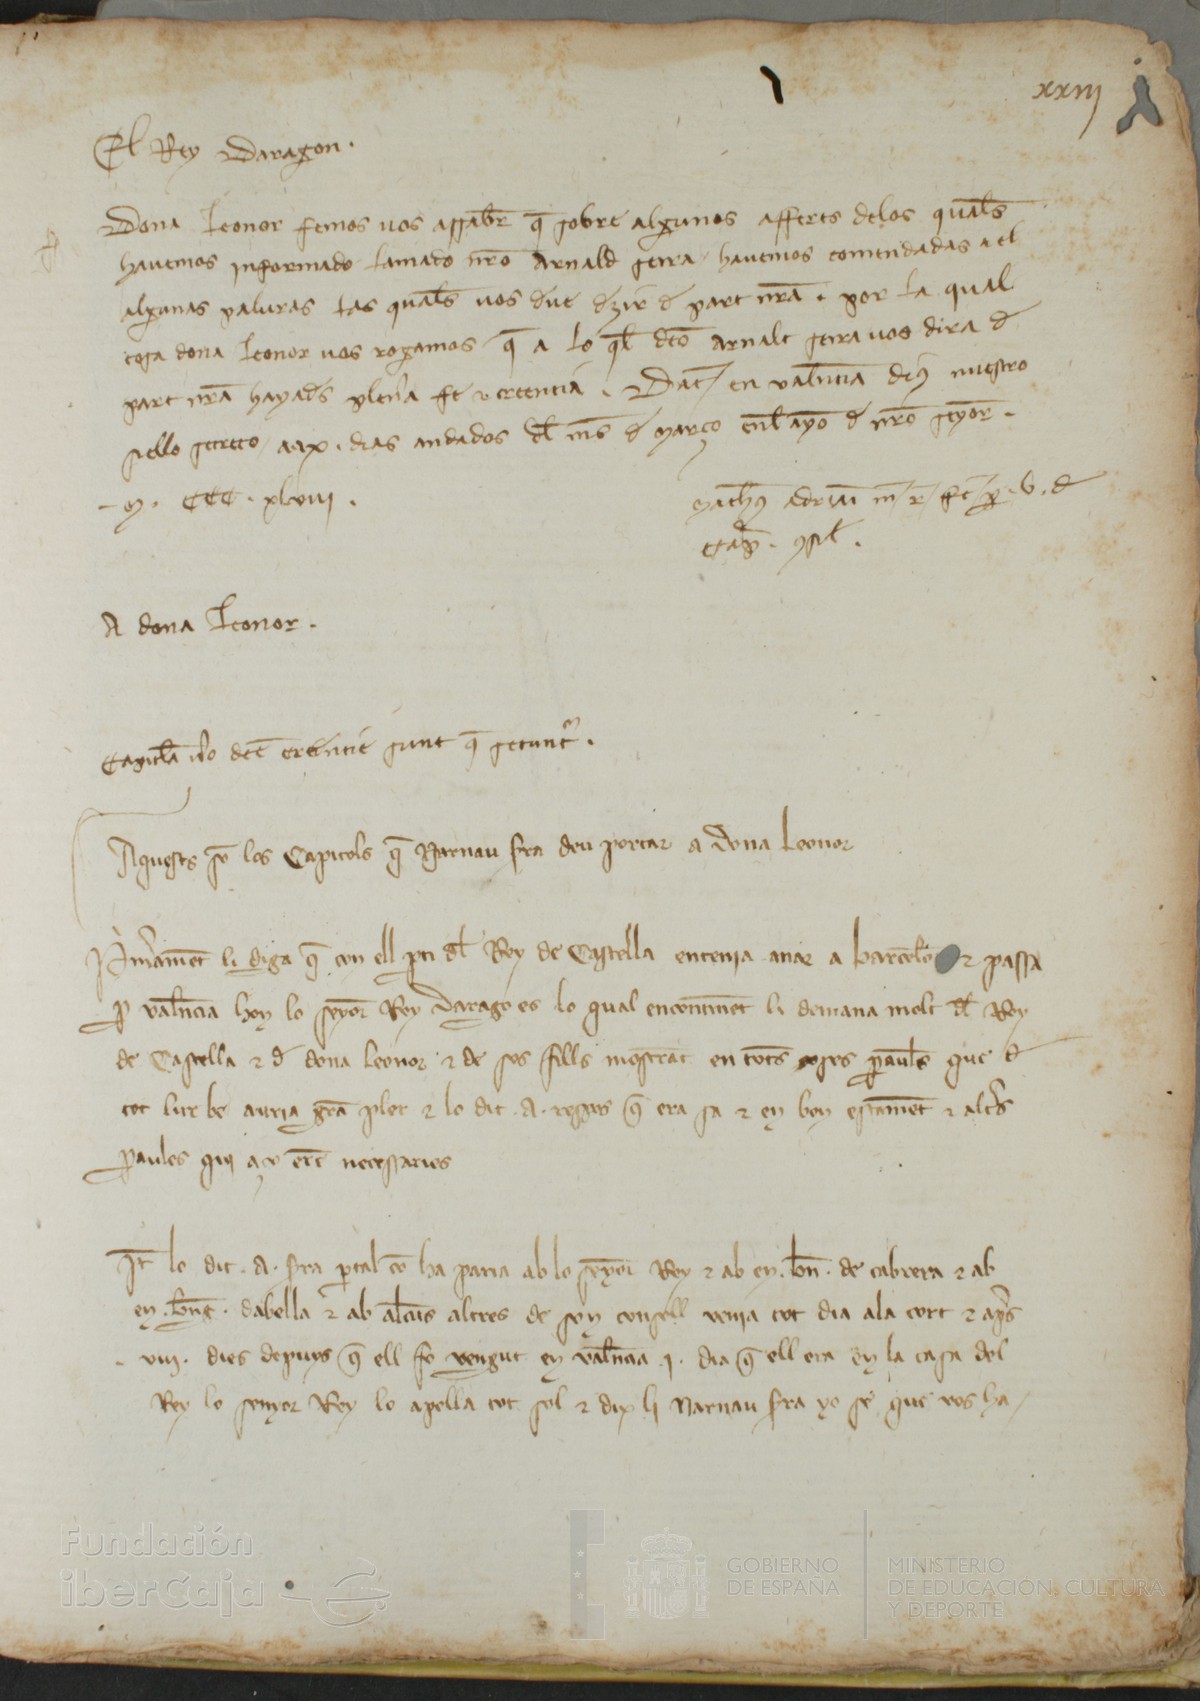 xxiij
El Rey Daragon.
Dona Leonor femos vos assabr̄ q̄ sobre algunos afferes delos qual̄s
havemos informado lamado nr̄o Arnald seira havemos comendadas a el
algunas paluras las qual̄s vos deue dezir de part nr̄a. por la qual
cosa dona Leonor vos rogamos q̄ a lo q̄l dc̄o Arnalt seira vos dira de
part nr̄a hayad̄s plen̄a fe z creencia. Dat en val̄ncia dius nuestro
siello secreto dias andados dl̄ mēs de março enl̄ ayo de nr̄o seyor.
M. CCC. xlviij.
A dona Leonor.
Capitl̄a dc̄e creencie sunt q̄ secunt̄.
Aquests sō los Capitols q̄ Narnau fra deu portar a dona Leonor
Prīmamēt li diga q̄ con ell ptī dl̄ Rey de Castella entenia anar a barcelo z passa
p̄ val̄ncia hon lo seyor Rey Darago es lo qual encontinēt li demana molt dl̄ Rey
de Castella z d̄ dona Leonor z de sos fills mostrāt en tot̄s coses p̄aul̄s que d̄
tot lur be auria grā pler z lo dit .A. respos q̄ era sa z en bon estamēt z altr̄s
p̄aules qui erē necessaries
It̄ lo dit .A. fra p̄ tal cō ha paria ab lo seyor Rey z ab en .bn̄. de cabrera z ab
en . dabella z ab alcūs altres de son consell venia tot dia ala cort z ap̄s
.viij. dies depuys q̄ ell fo vengut en val̄ncia .j. dia q̄ ell era en la casa del
Rey lo senyor Rey lo apella tot sol z dix li Narnau fra yo se que vos ha
Fundación
iberCaja
GOBIERNO
DE ESPAÑA
MINISTERIO
DE EDUCACIÓN, CULTURA
Y DEPORTE